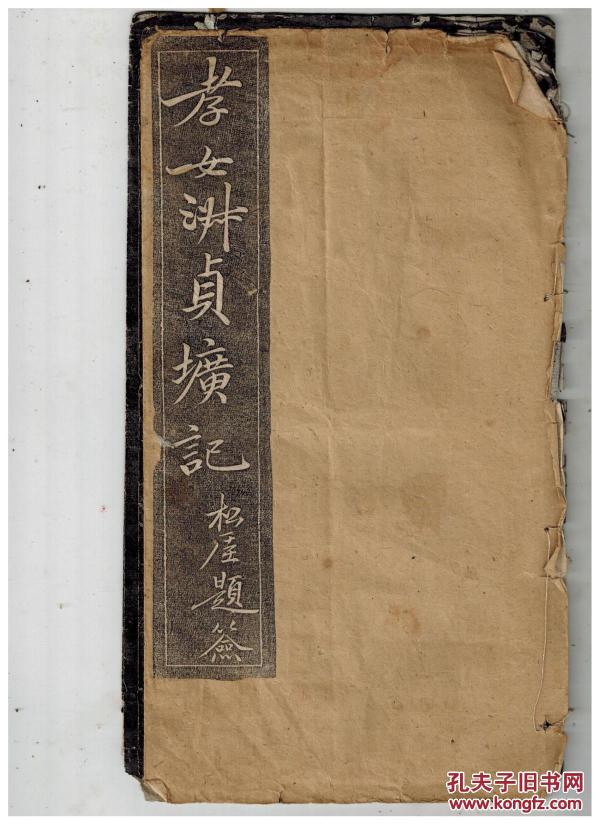 孝女淑貞壙記
松厓題簽
孔夫子旧书网
www.kongfz.com